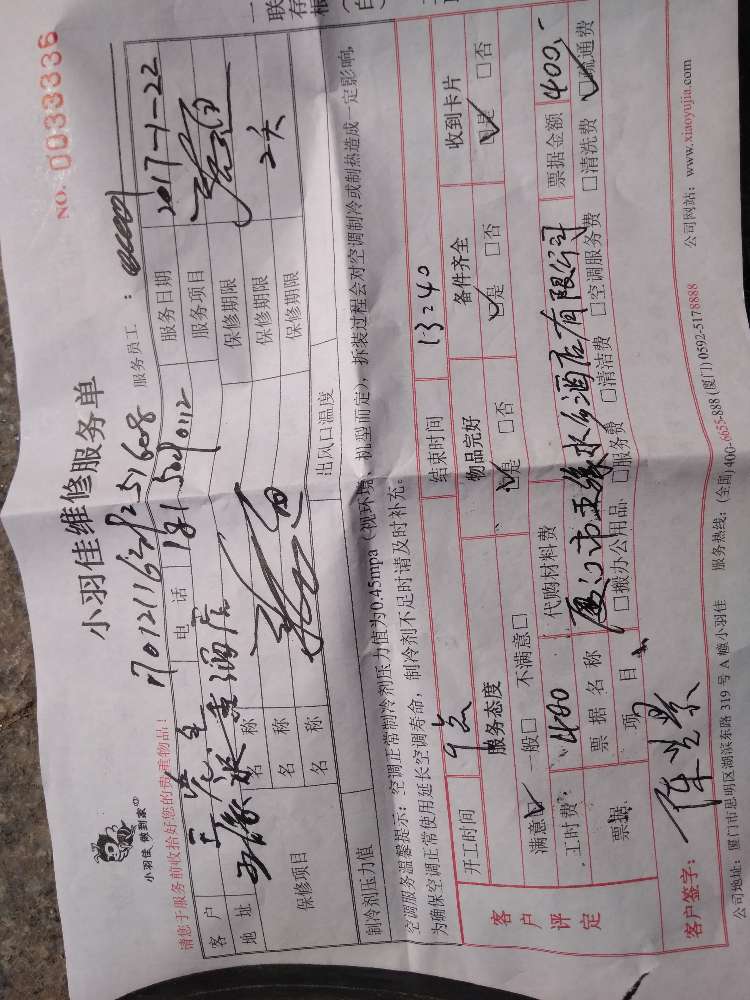 小羽佳维修服务单
NO. 0033336
小羽佳 做到家
请您于服务前收拾好您的贵重物品!
服务员工:
客户 电话 服务日期 2017-1-22
地址 酒店 服务项目
保修项目 名称 保修期限
名称 保修期限
名称 保修期限 2天
制冷剂压力值 出风口温度
空调服务温馨提示:空调正常制冷剂压力值为0.45mpa(视环境、机型而定),拆装过程会对空调制冷或制热造成一定影响,
为确保空调正常使用延长空调寿命,制冷剂不足时请及时补充。
客户评定
开工时间 9点 结束时间 13:40
服务态度 物品完好 备件齐全 收到卡片
满意□ 一般□ 不满意□ □是 □否 □是 □否 □是 □否
工时费 400 代购材料费
票据名称 厦门市五缘水乡酒店有限公司 票据金额 400,-
票据项目 □搬办公用品 □服务费 □清洁费 □空调服务费 □清洗费 □疏通费
客户签字:
公司地址:厦门市思明区湖滨东路319号A幢小羽佳 服务热线:(全国)400-6655-888(厦门)0592-5178888 公司网站:www.xiaoyujia.com
一联存根(白)